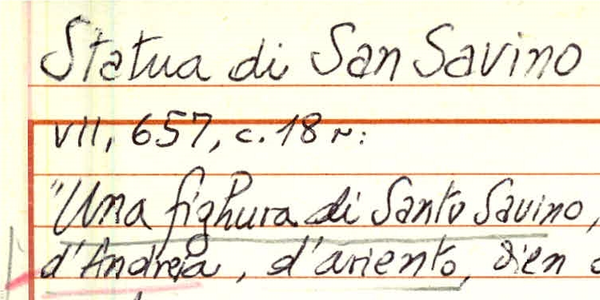 Statua di San Savino
VII, 657, c. 18 r:
"Una fighura di Santo Savino,
d'Andreia, d'ariento, dien